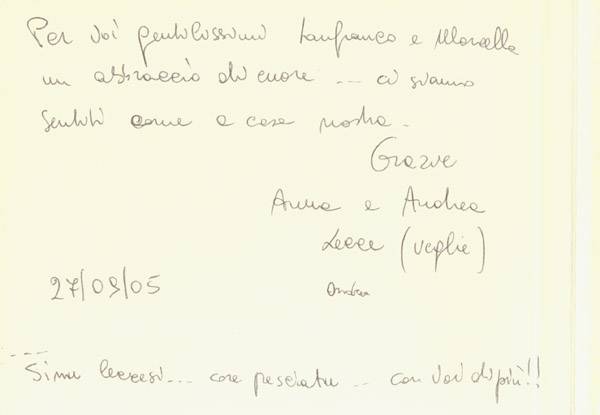 Per voi gentilissimi Lanfranco e Marcella
un abbraccio di cuore ... ci siamo
sentiti come a casa nostra.
Grazie
Anna e Andrea
Lecce (Veglie)
27/09/05
Andrea
Simu leccesi... core presciatu... con voi di più!!